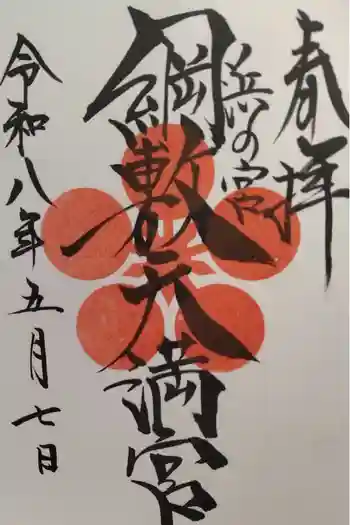 奉拝
浜の宮
綱敷天満宮
令和八年五月七日